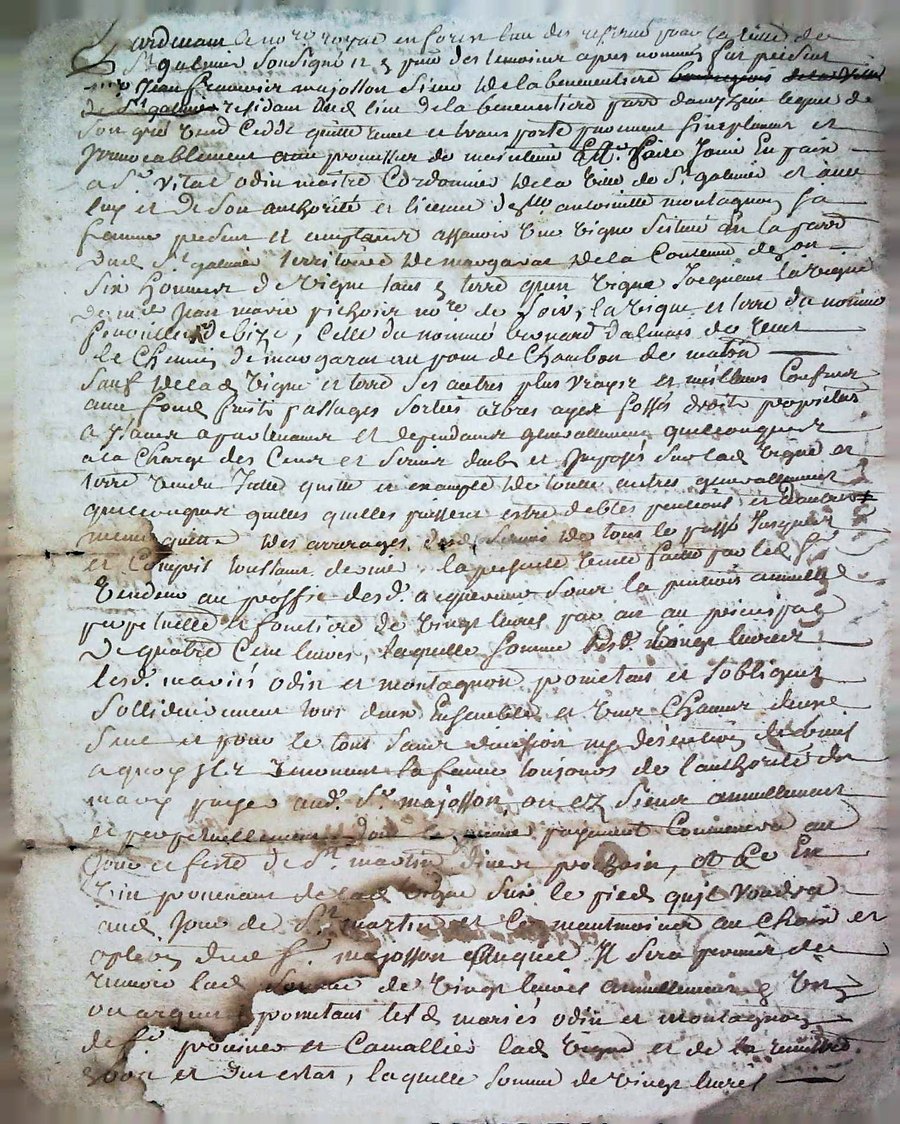 Pardevant le no.re royal en forest l'un des reservé pour la ville de
St galmier soussigné et p.nt des temoins apres nommés fut present
sieur Jean francois majosson sieur de la beneventiere
de St galmier residant aud. lieu de la beneventiere parr.
son gré vend cedde quitte remet et transporte purement simplement et
jrrevocablement avec promesse de maintenir faire jouir en paix
a Sr. vital odin maitre Cordonnier de la ville de St galmier et avec
luy et de son authorité et licence d.lle antoinette montagnon sa
femme present et acceptant assavoir une vigne scituée en la parr.
dud. St galmier territoire de maugaran de la Contenue de
six hommes de vigne tant en terre qu'en vigne joignant la vigne
de m.e Jean marie no.re de soir, la vigne et terre du nommé
de bize, celle du nommé bernard dalmais de vent
le Chemin de maugaran au pont de Chambon de matin
sauf de lad. vigne et terre ses autres plus vrayes et meilleurs Confins
avec fonds fruits passages sorties arbres ayes fossés droits proprietés
a jsances apartenances et dependances generallement quelconques
a la Charge des Cens et servis dubs et jmposés sur lad. vigne et
terre venduë jcelle quitte et exempte de toutes autres generallement
quelconques quelles quelles puissent estre debtes pensions et
meme quitte des arrerages desd. servis de tout le passé jusques
et Compris la presente vente faitte par led. Sr.
vendeur au proffit desd. acquereurs sous la pension annuelle
perpetuelle et fonciere de vingt livres par an au principal
de quatre Cent livres, laquelle somme desd. vingt livres
lesd. mariés odin et montagnon prometent et s'obligent
sollidairement tous deux Ensembles et l'un Chacun d'eux
seul et pour le tout sans division ny discution de biens
a quoy jls renoncent la femme toujours de l'authorité du
mary payer aud. Sr. majosson, ou ez siens annuellement
et perpetuellement dont le premier payement Commencera au
jour et feste de St. martin d'hiver prochain, et Ce En
vin provenant de lad. vigne sur le pied qu'il vaudra
aud. jour de St. martin et Ce neantmoins au Choix et
option dud. Sr. majosson auquel Il sera permis de
recevoir lad. somme de vingt livres annuellement en vin
ou argent prometant lesd. mariés odin et montagnon
de provigner et lad. vigne et de la
bon et du estat, laquelle somme de vingt livres